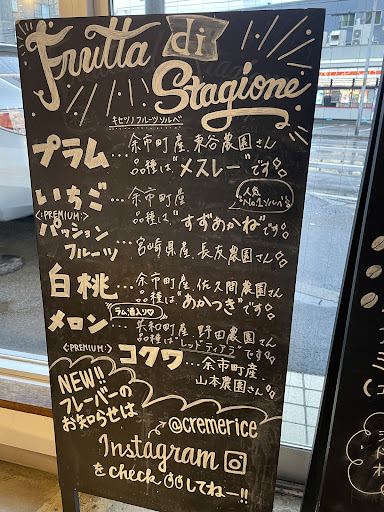 Frutta di
Stagione
キセツノフルーツソルベ
プラム…余市町産 東谷農園さん
品種は"メスレー"です
いちご…余市町産
品種は"すずあかね"です
人気No.1ソルベ
<PREMIUM>
パッションフルーツ…宮崎県産 長友農園さん
白桃…余市町産 佐久間農園さん
品種は"あかつき"です
ラム酒入り
メロン…共和町産 野田農園さん
品種は"レッドティアラ"です
<PREMIUM>
コクワ…余市町産
山本農園さん
NEW!!
フレーバーの
お知らせは
@cremerice
Instagram
をcheckしてねー!!